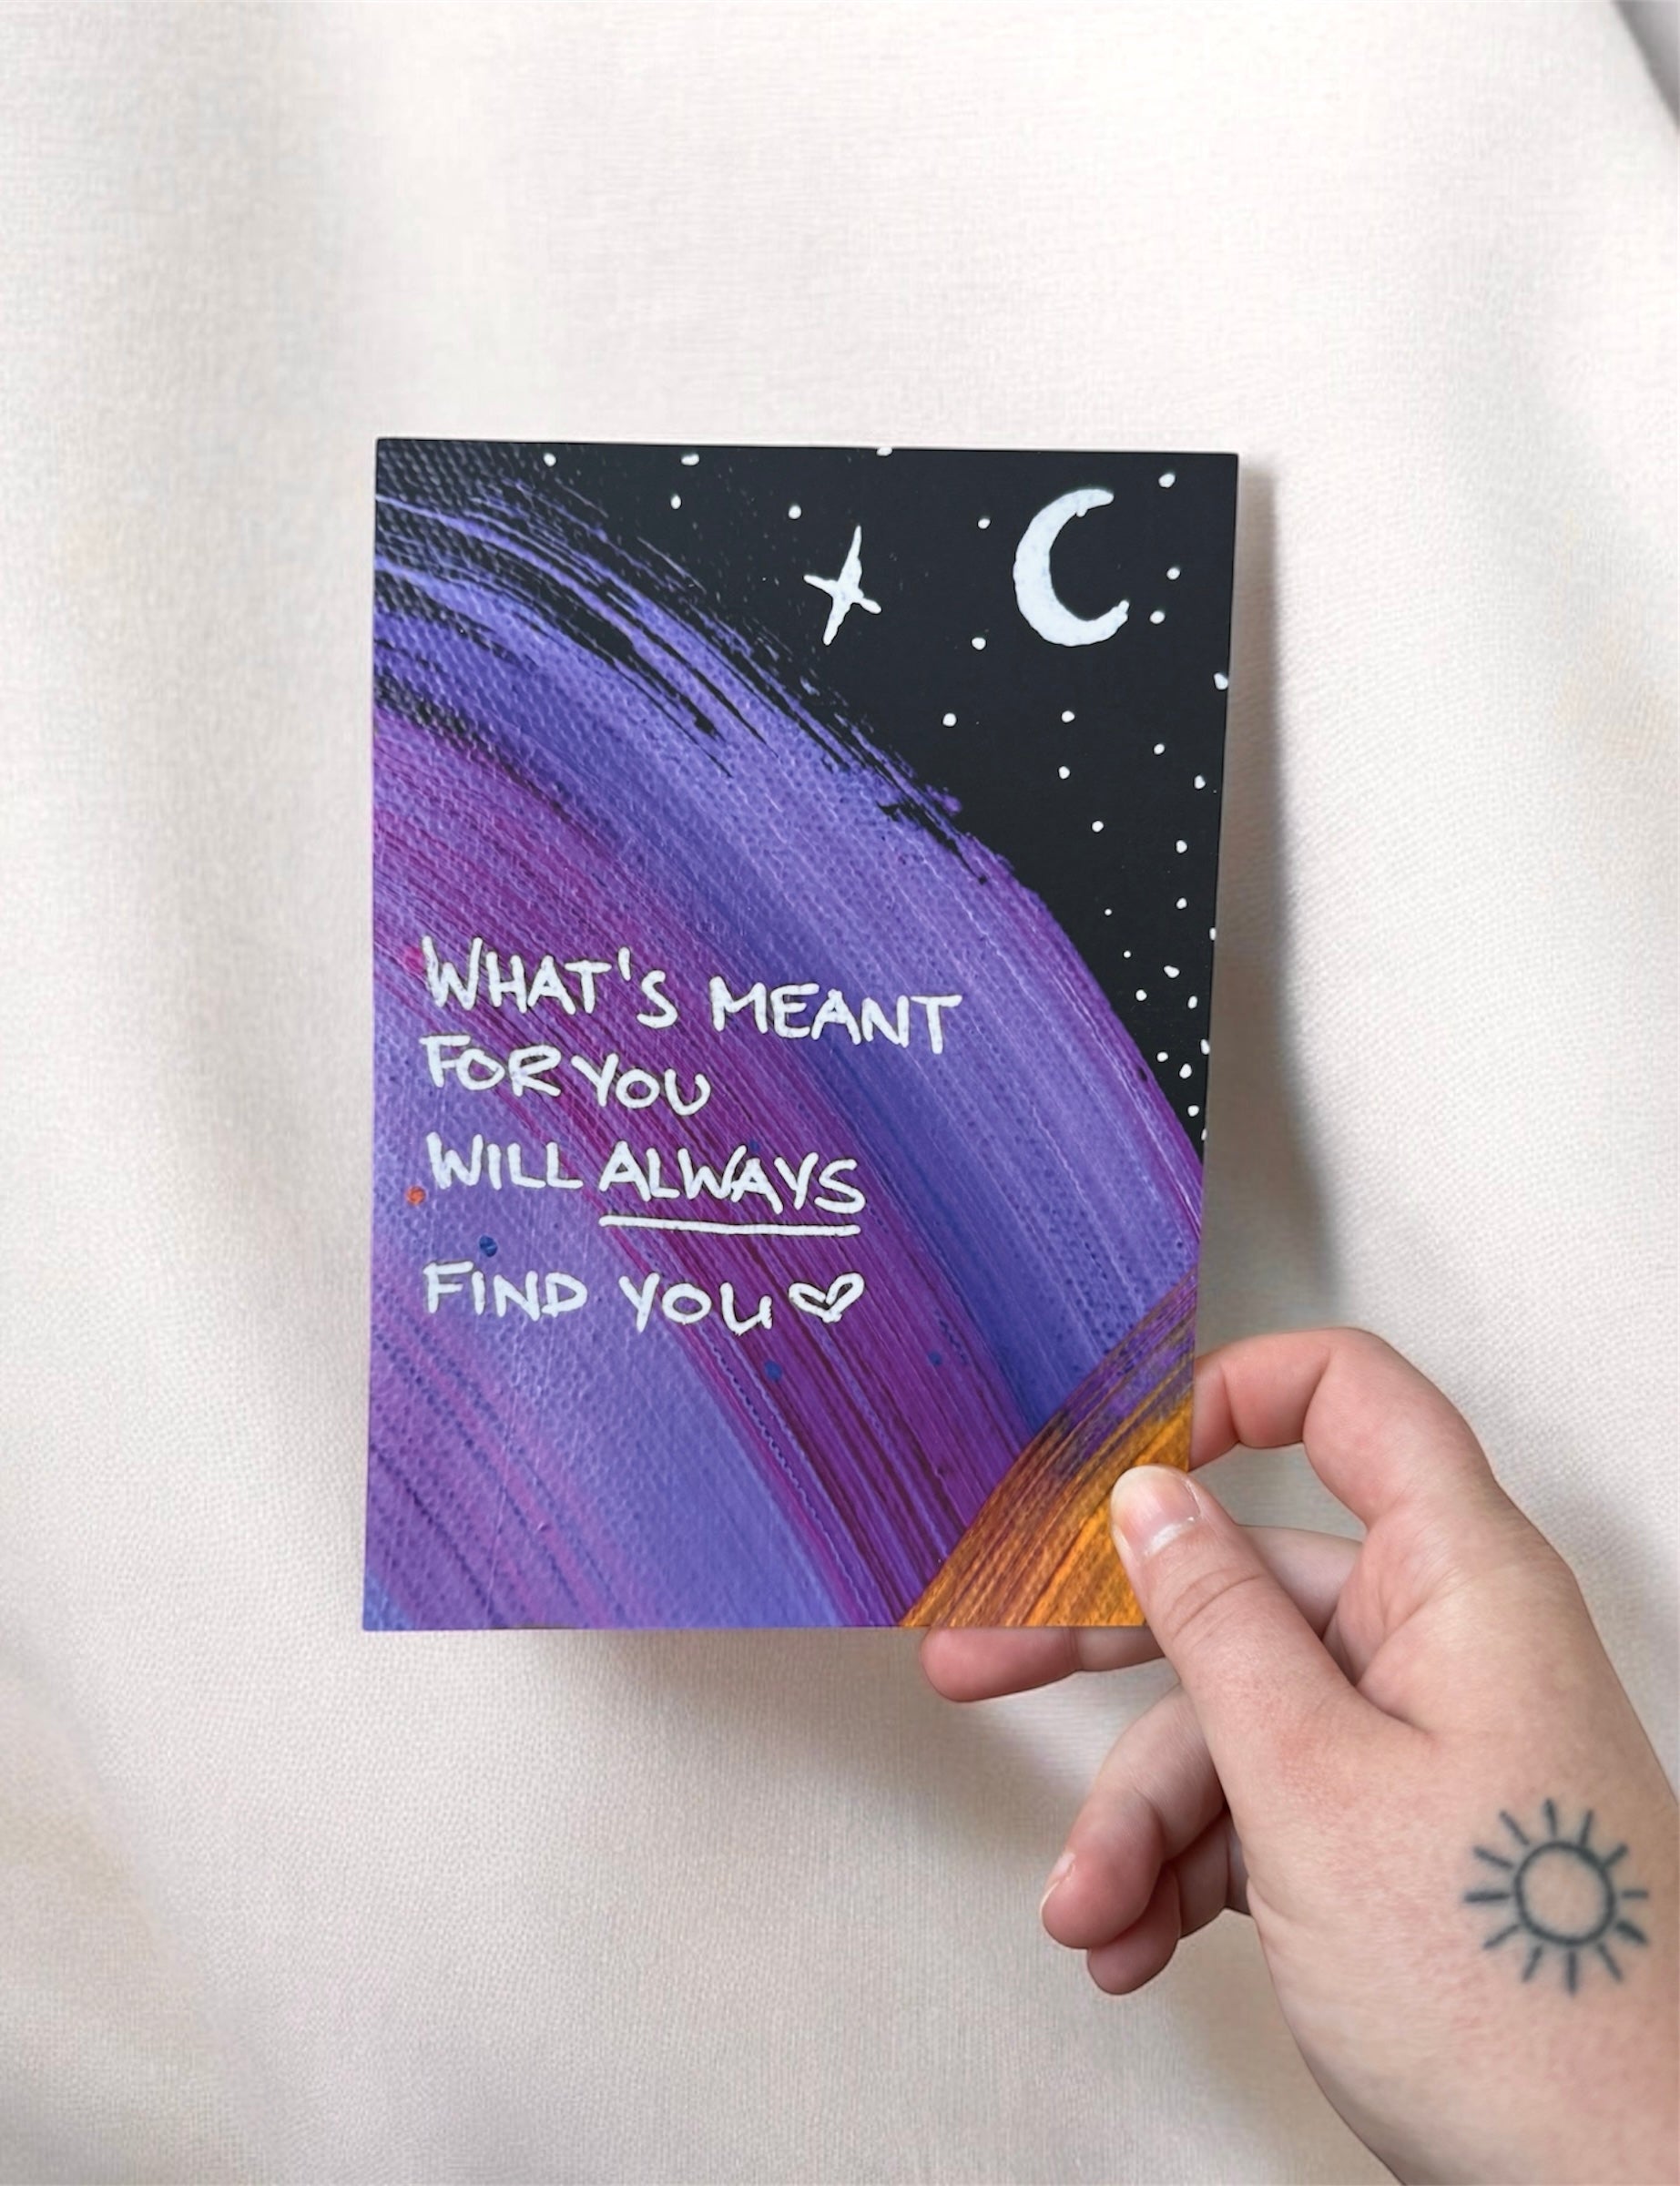 WHAT'S MEANT
FOR YOU
WILL ALWAYS
FIND YOU ♡